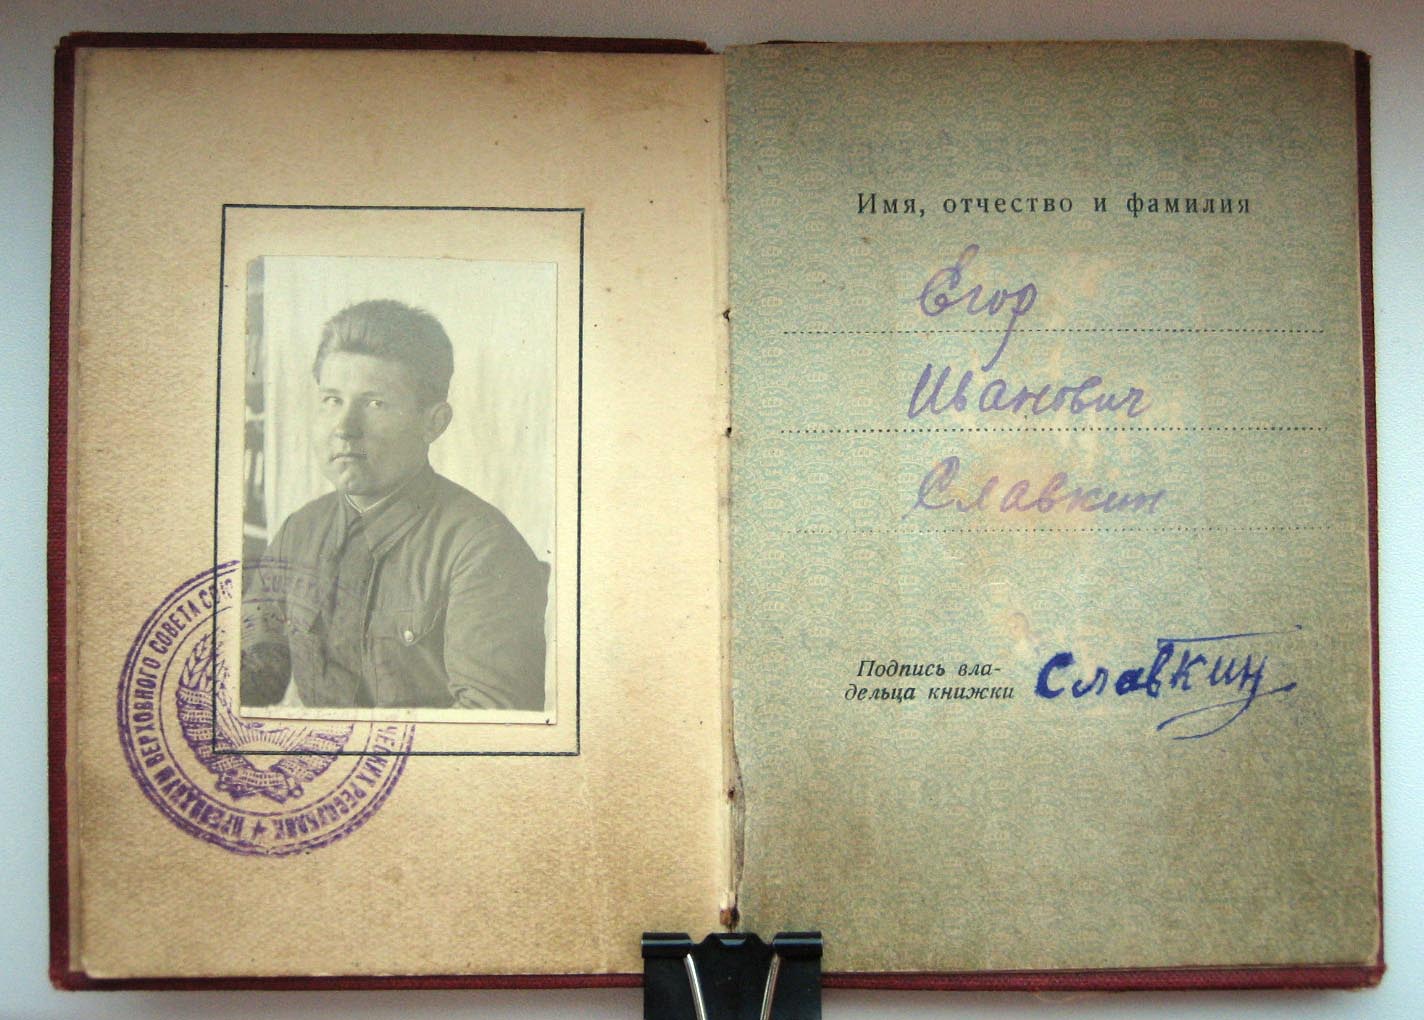 ПРЕЗИДИУМ ВЕРХОВНОГО СОВЕТА СОЮЗА СОВЕТСКИХ
ЧЕСКИХ РЕСПУБЛИК ★
Имя, отчество и фамилия
Егор
Иванович
Славкин
Подпись вла-
дельца книжки
Славкин